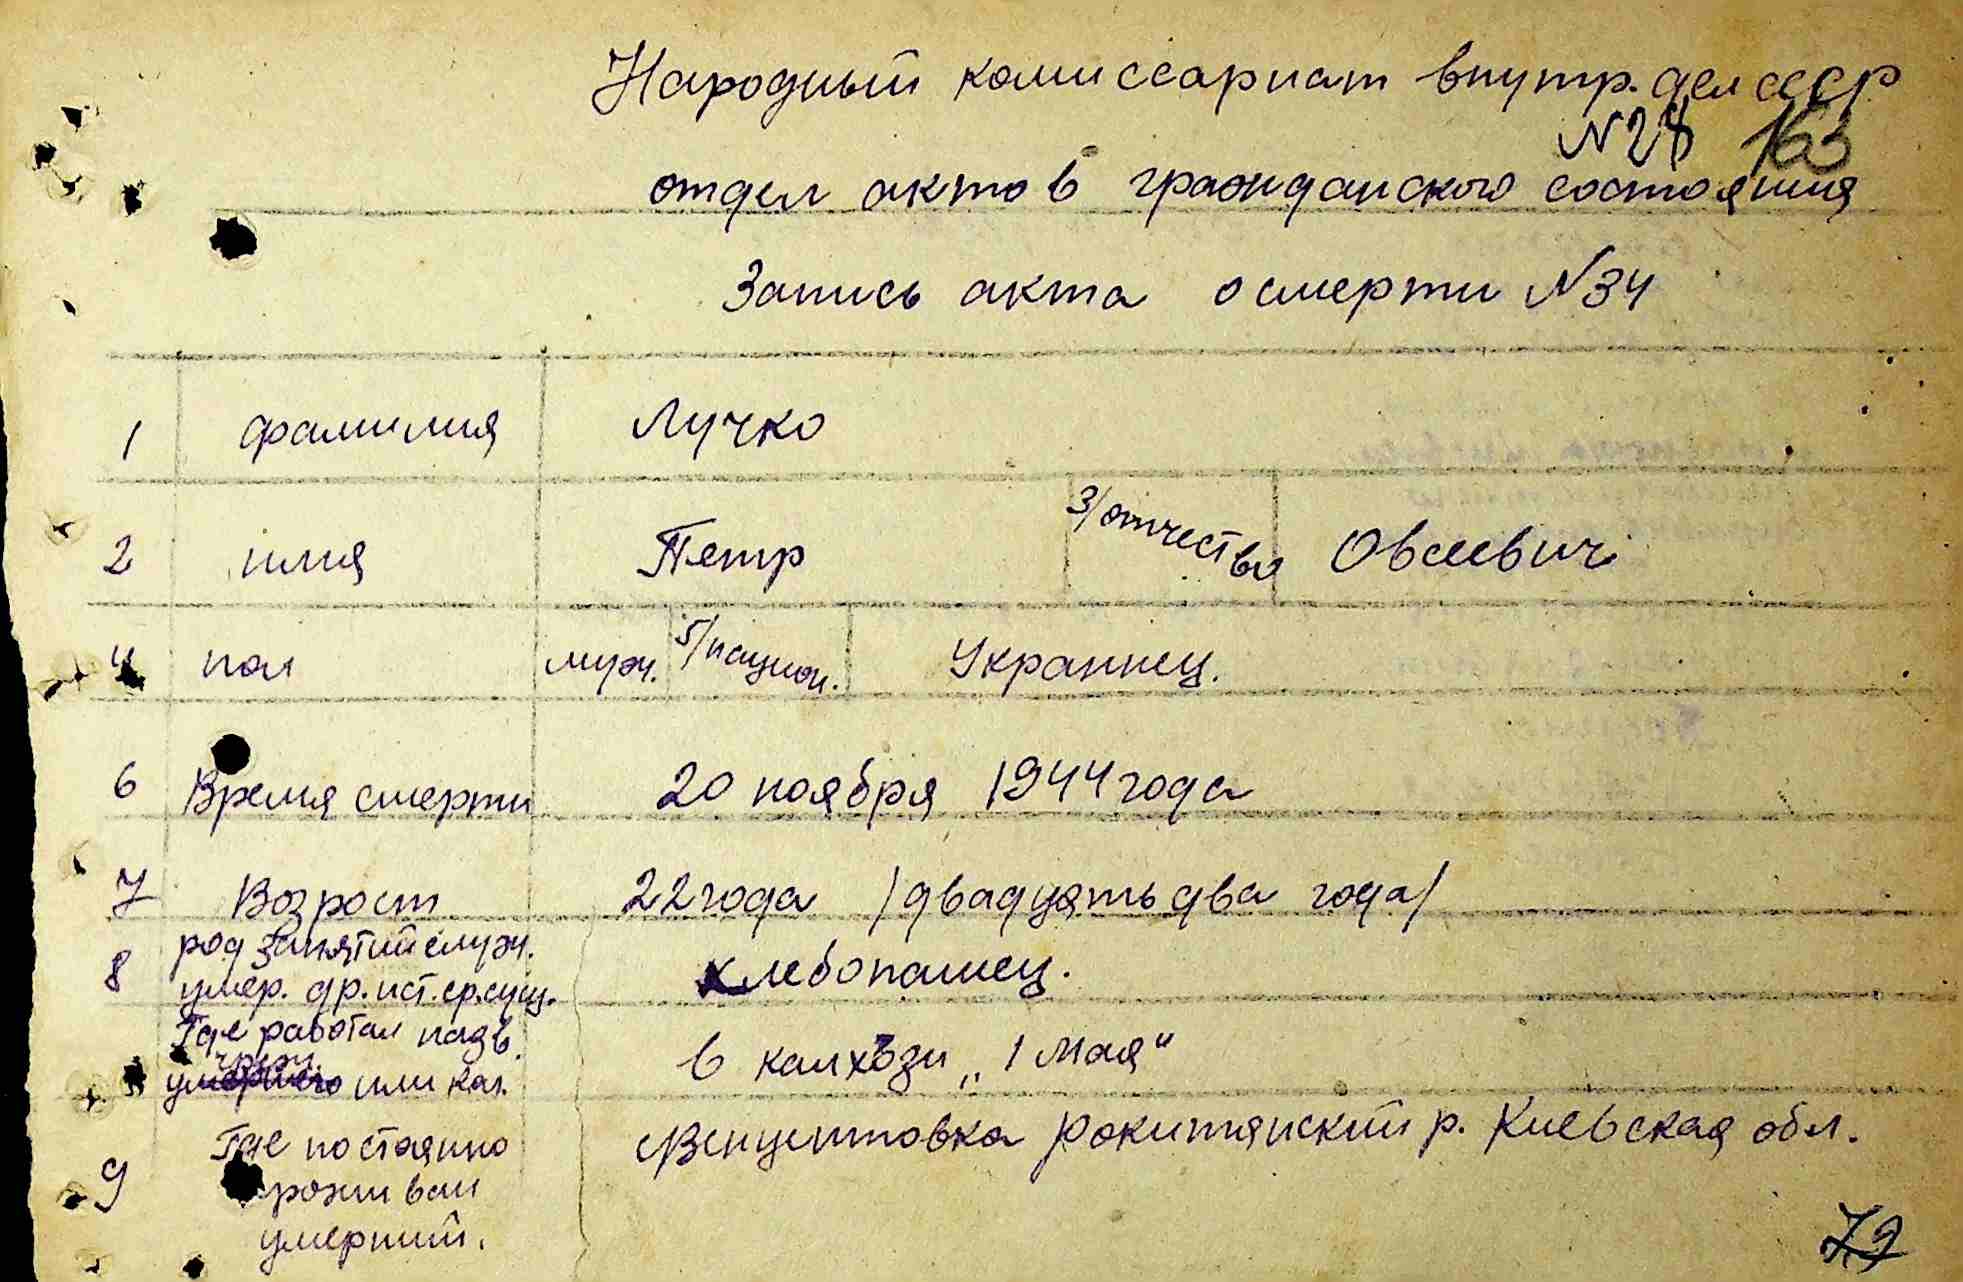 Народный комиссариат внутр. дел ссср
N28 163
отдел актов гражданского состояния
Запись акта о смерти N34
1 фамилия Лучко
2 имя Петр 3/отчество Овсеевич
4 пол муж. 5/национ. Украинец.
6 Время смерти 20 ноября 1944 года
7 Возрост 22 года /двадцять два года/
8 род занятий служ. умер. др. ист. ср. сущ. хлебопашец.
Где работал назв.
учреж.
или кол. в калхози „1 Мая"
9 Где постоянно проживал умерший. с. Винцентовка Рокитянский р. Киевская обл.
72